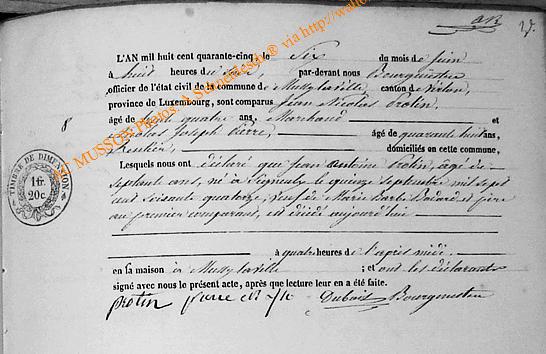 27.
L'AN mil huit cent quarante-cinq, le Six du mois de juin
à huit heures par-devant nous Bourgmestre
officier de l'état civil de la commune de Mussy la ville, canton de Virton,
province de Luxembourg, sont comparus Jean Nicolas Protin,
8 âgé de quatre ans, Marchand et
Nicolas Joseph Pierre, âgé de quarante huit ans,
Rentier, domiciliés en cette commune,
Lesquels nous ont déclaré que Jean Protin, âgé de
septante ans, né à le quinze septembre mil sept
cent soixante quatorze, Marie Barbe et père
au premier comparant, est décédé aujourd'hui
à quatre heures de l'après midi
en sa maison à Mussy la ville ; et ont les déclarants
signé avec nous le présent acte, après que lecture leur en a été faite.
protin pierre Dubois Bourgmestre
TIMBRE DE DIMENSION
1 fr.
20 c
MUSSON Photos: A Schneidesch @ via http://